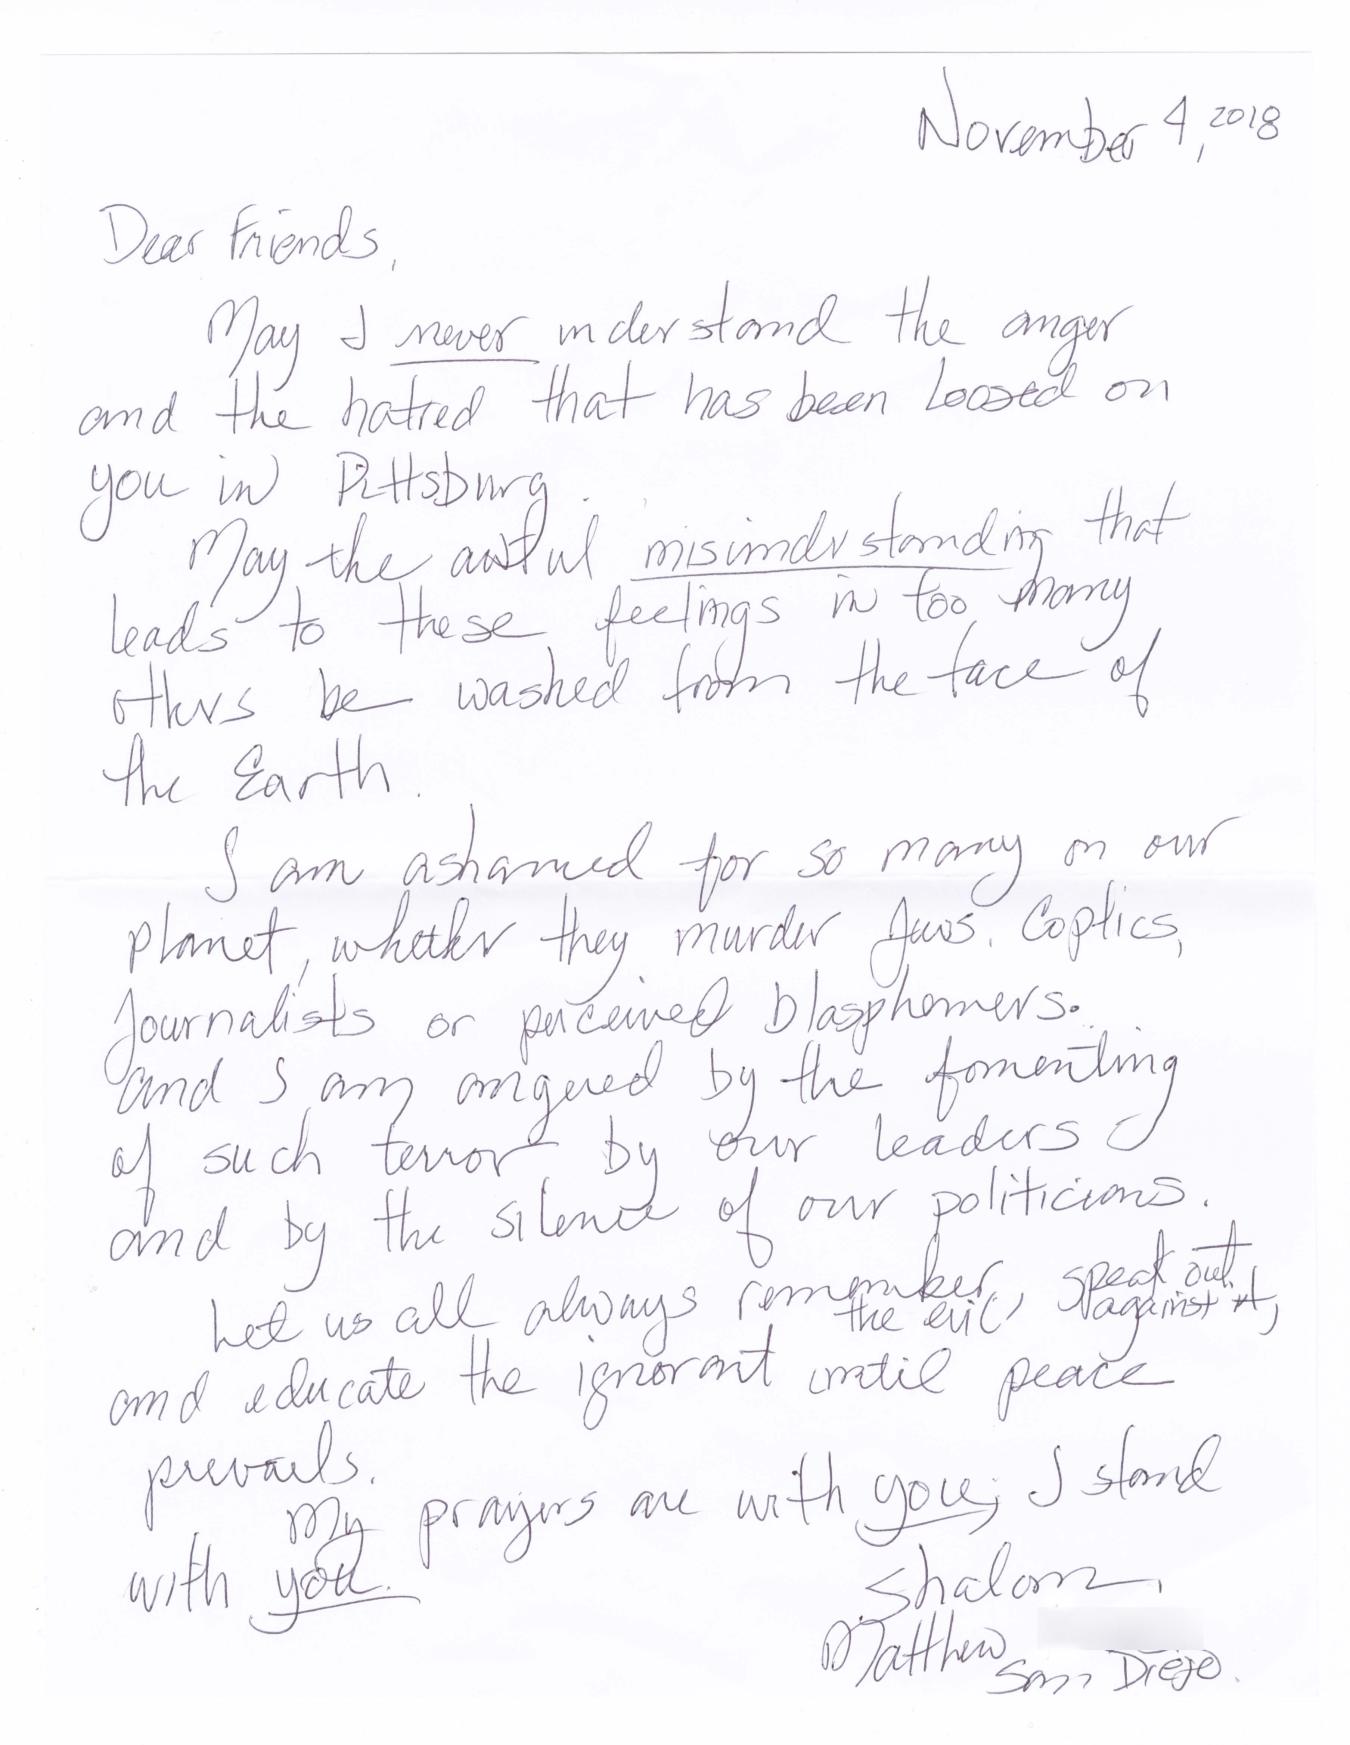 November 4, 2018
Dear Friends,
May I never understand the anger
and the hatred that has been loosed on
you in Pittsburg.
May the awful misunderstanding that
leads to these feelings in too many
others be washed from the face of
the Earth.
I am ashamed for so many on our
planet, whether they murder Jews, Coptics,
Journalists or perceived blasphemers.
And I am angered by the fomenting
of such terror by our leaders
and by the silence of our politicians.
Let us all always remember, speak out
the evil, against it,
and educate the ignorant until peace
prevails.
My prayers are with you; I stand
with you.
Shalom,
Matthew
San Diego.